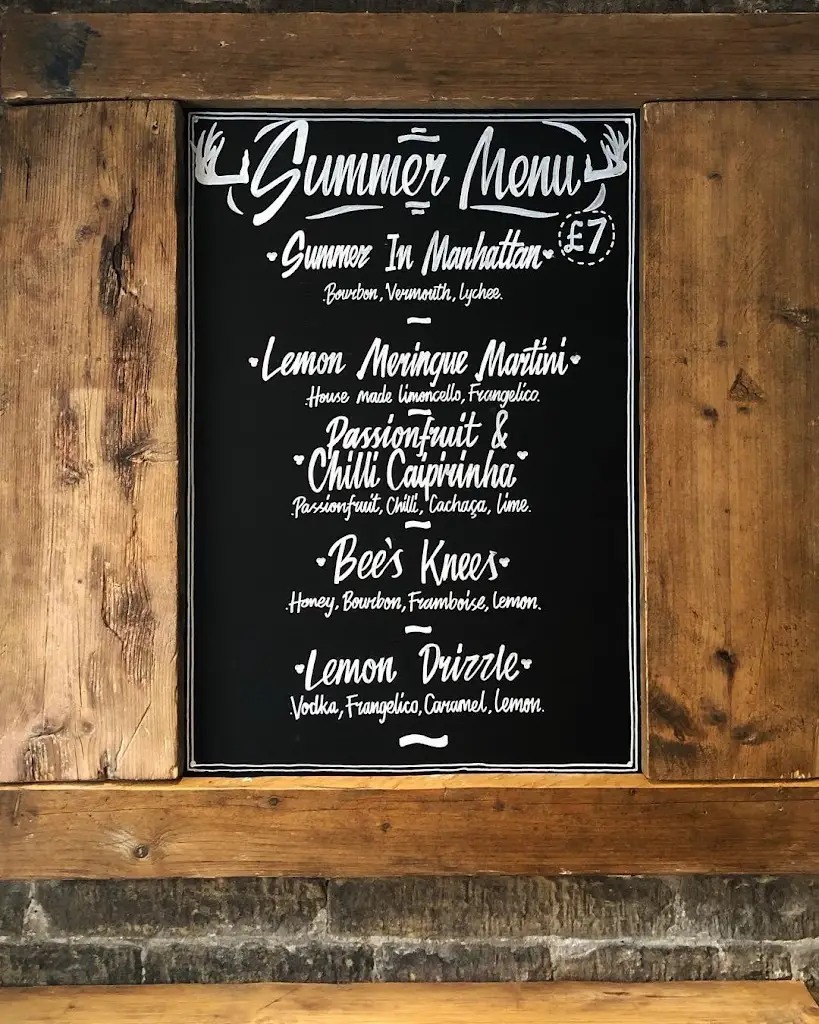 Summer Menu
£7
Summer In Manhattan
Bourbon, Vermouth, Lychee.
Lemon Meringue Martini
House made limoncello, Frangelico.
Passionfruit &
Chilli Caipirinha
Passionfruit, Chilli, Cachaça, lime.
Bee's Knees
Honey, Bourbon, Framboise, Lemon.
Lemon Drizzle
Vodka, Frangelico, Caramel, Lemon.